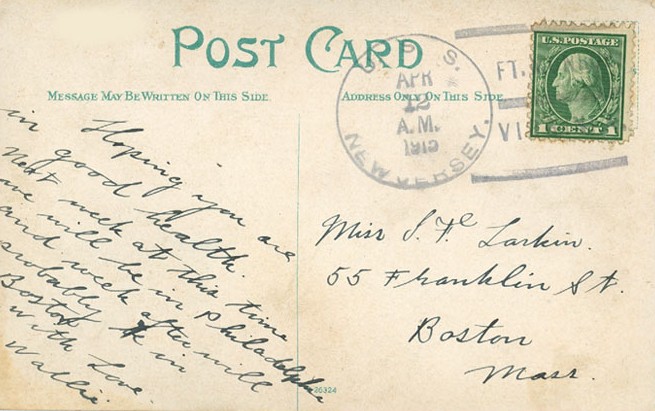 POST CARD
MESSAGE MAY BE WRITTEN ON THIS SIDE.
ADDRESS ONLY ON THIS SIDE
U.S. S.
APR
12
A.M.
1915
NEW JERSEY.
FT.
VI
U.S. POSTAGE
1 CENT 1
Hoping you are
in good health.
Next week at this time
we will be in Philadelphia
and week after will
probably be in
Boston
with Love.
Wallie.
Miss S. F. Larkin.
55 Franklin St.
Boston
Mass.
26324